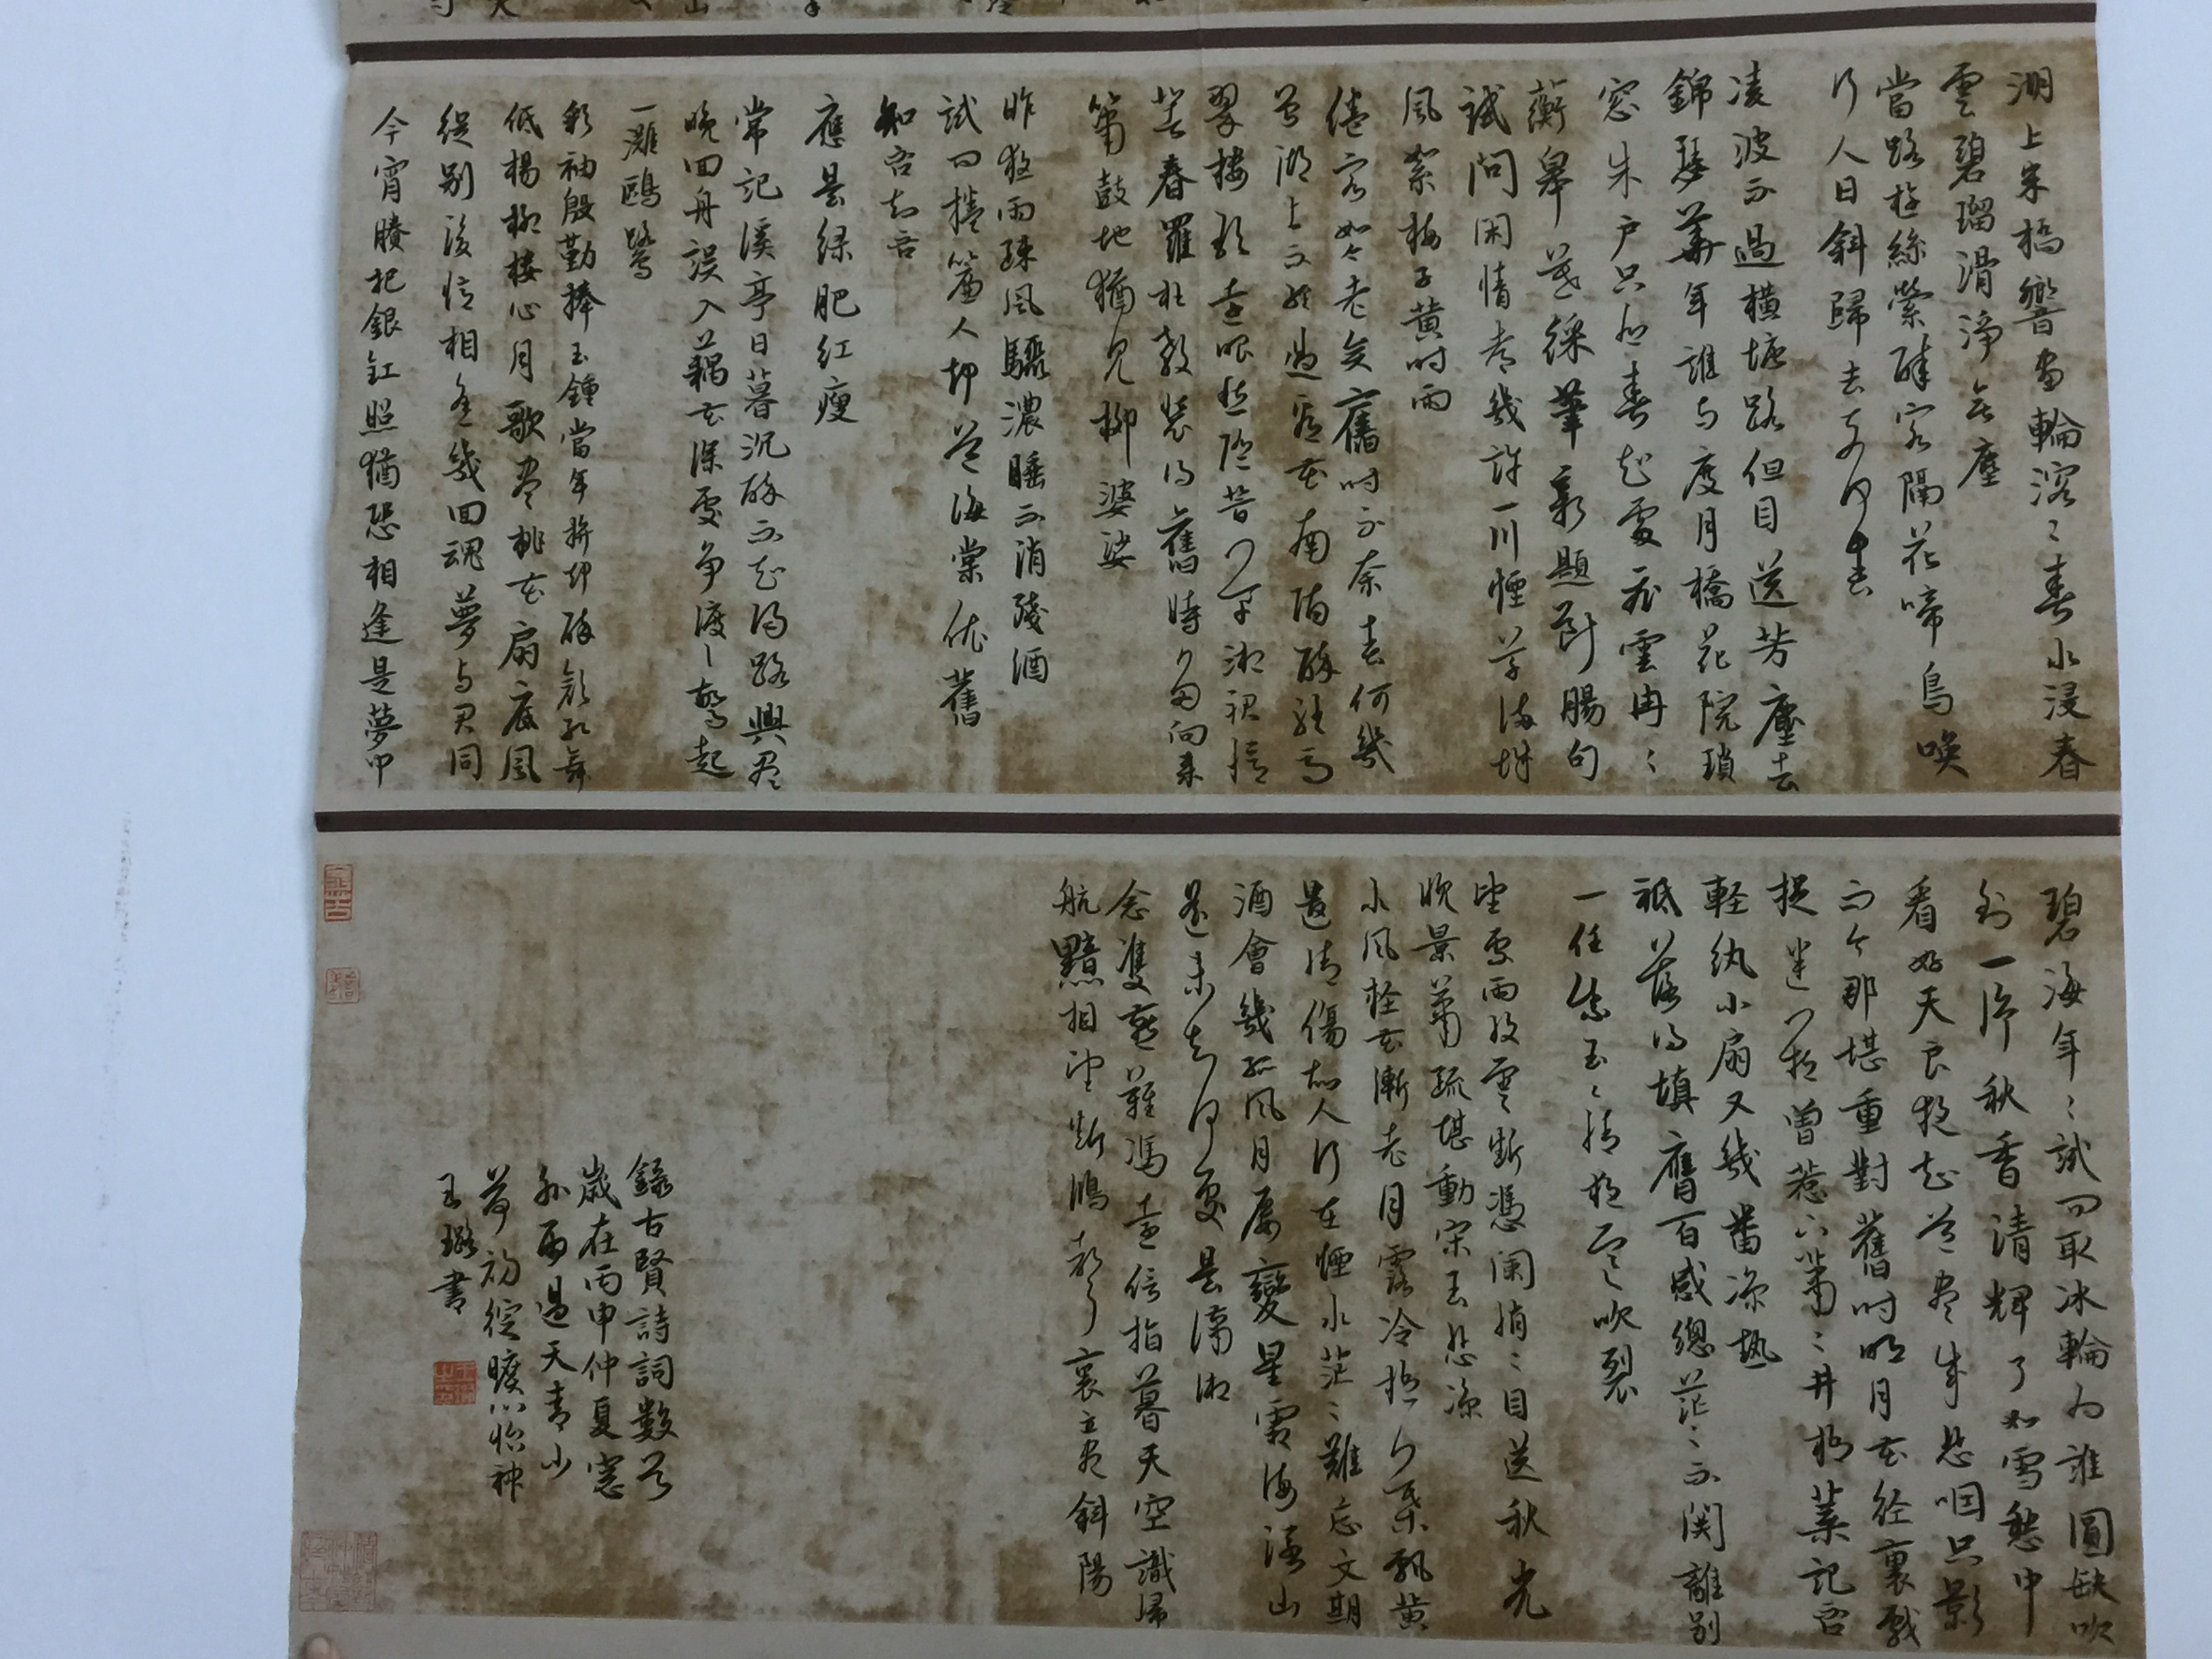 湖上朱橋響畫輪溶〻春水浸春
雲碧琉滑淨無塵
當路遊絲縈醉客隔花啼鳥喚
行人日斜歸去奈何春
凌波不過橫塘路但目送芳塵去
錦瑟華年誰与度月橋花院瑣
窓朱户只有春知處飛雲冉〻
蘅皋暮綵筆新題斷腸句
試問閑情都幾許一川煙草滿城
風絮梅子黄时雨
倦客如今老矣舊时不奈春何幾
曾湖上不經過看花南陌醉駐馬
翠樓歌遠眼愁隨芳草湘裙憶
著春羅枉教裝得舊時多向來
簫鼓地猶見柳婆娑
昨夜雨疎風驟濃睡不消殘酒
試问捲簾人却道海棠依舊
知否知否
應是绿肥红瘦
常記溪亭日暮沉醉不知歸路興尽
晚回舟誤入藕花深處争渡〻驚起
一灘鷗鷺
彩袖殷勤捧玉鍾當年拚却醉顔红舞
低楊柳樓心月歌尽桃花扇底風
從别後憶相逢幾回魂夢与君同
今宵賸把銀釭照猶恐相逢是夢中
碧海年〻試问取冰輪为誰圓缺吹
到一片秋香清輝了如雪愁中
看好天良夜知道尽成悲咽只影
而今那堪重對舊时明月花径裏戲
捉迷藏曾惹下蕭〻井梧葉記否
軽纨小扇又幾番凉热
祗落得填膺百感總茫〻不関離别
一任紫玉無情夜寒吹裂
望處雨收雲斷憑闌悄〻目送秋光
晚景蕭疏堪動宋玉悲凉
水風輕花漸老月露冷梧葉飄黄
遣情傷故人何在煙水茫〻難忘文期
酒會幾孤風月屡變星霜海濶山
遥未知何處是瀟湘
念雙燕難馮遠信指暮天空識歸
航黯相望斷鴻聲裏立尽斜陽
錄古賢詩詞數首
歲在丙申仲夏窓
外雨過天青小
荷初綻曠心怡神
玉璐書